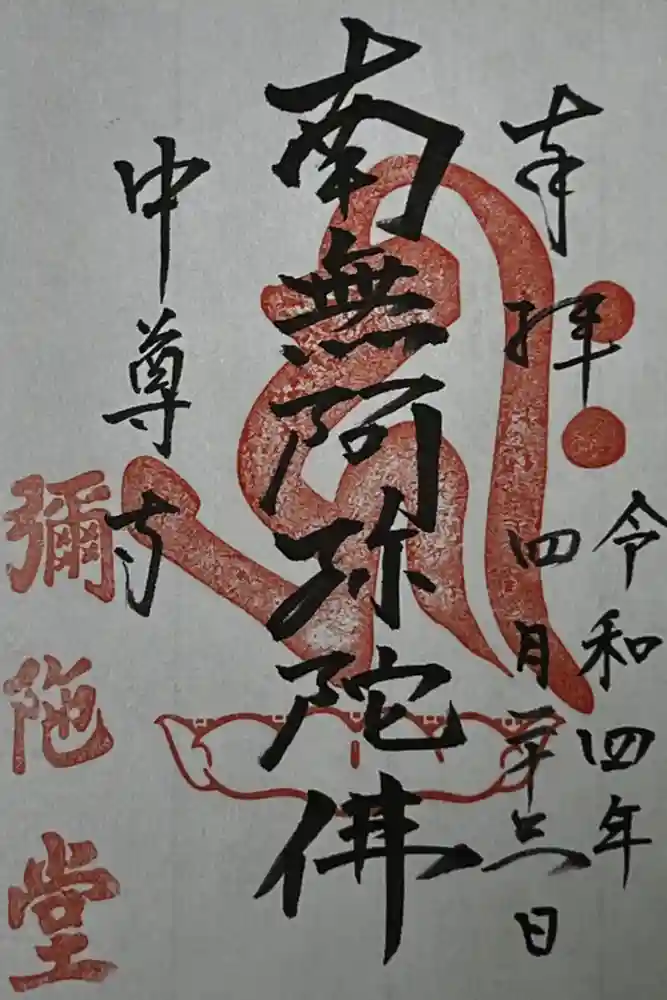 奉拝
令和四年
四月二十日
南無阿弥陀佛
中尊寺
彌陀堂